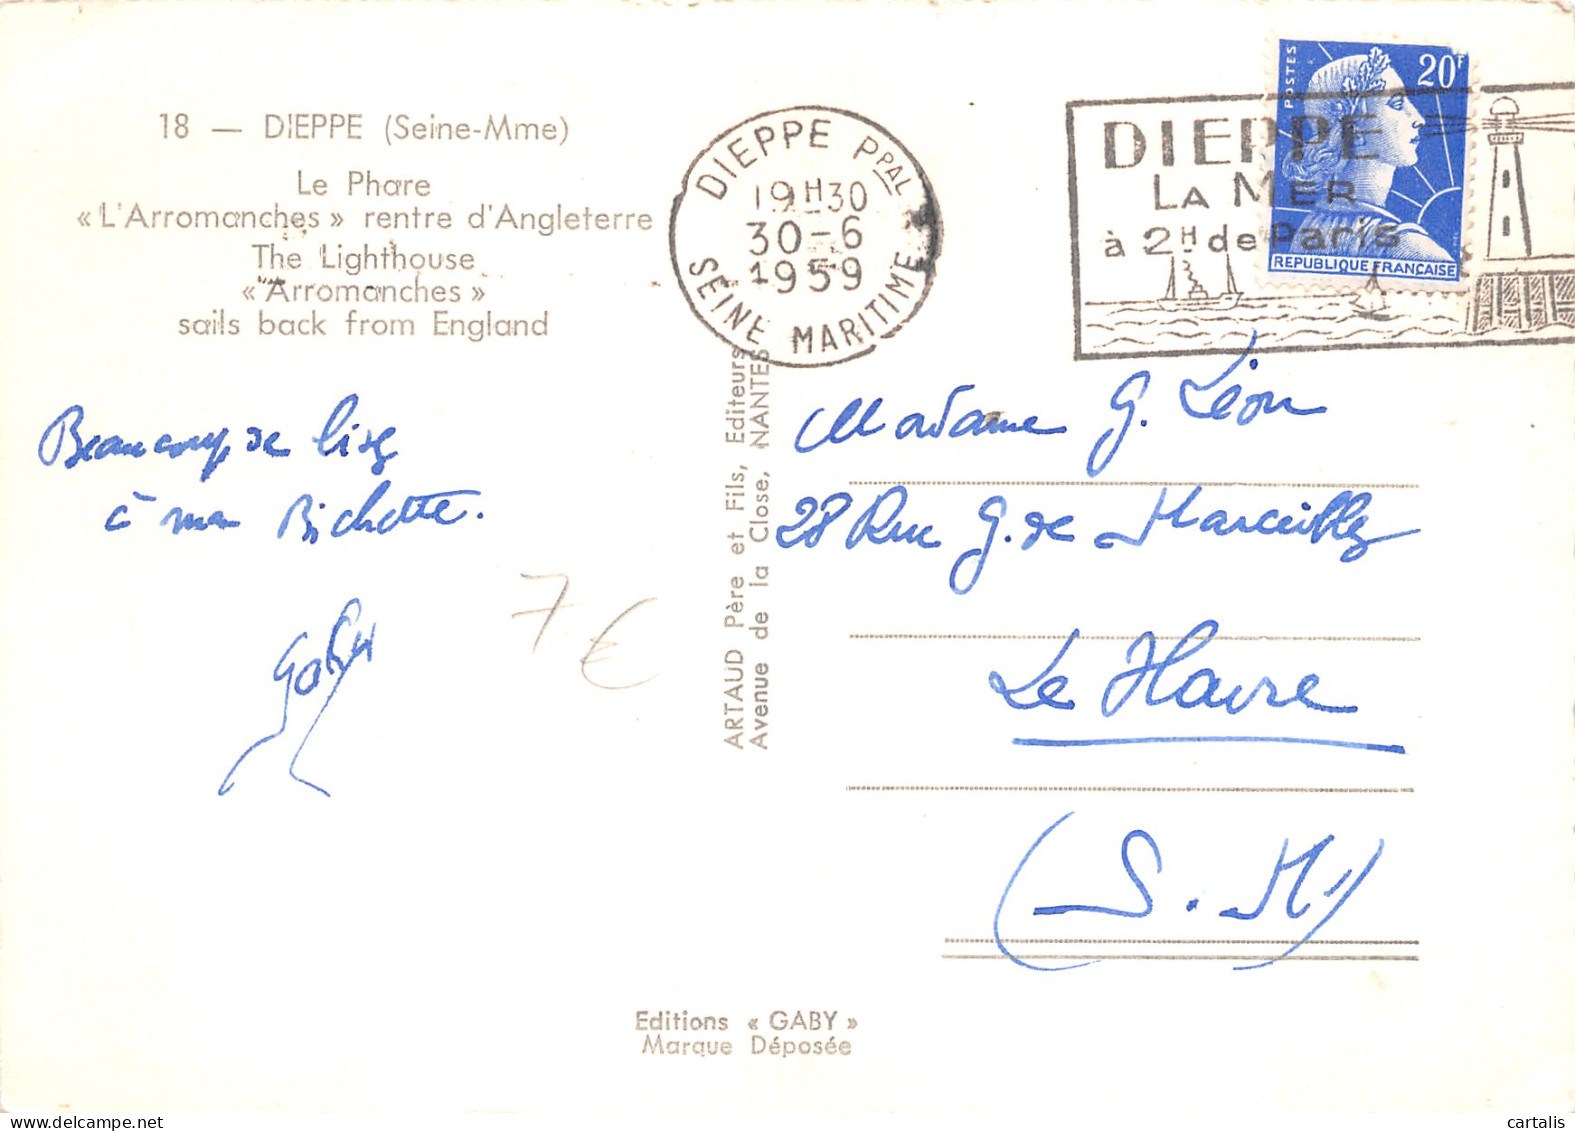 18 — DIEPPE (Seine-Mme)
Le Phare
« L'Arromanches » rentre d'Angleterre
The Lighthouse
« Arromanches »
sails back from England
Beaucoup de
à ma Bichette.
Gaby
7 €
ARTAUD Père et Fils, Editeurs
Avenue de la Close, NANTES
DIEPPE PPAL
19H30
30-6
1959
SEINE MARITIME
DIEPPE
LA MER
à 2H de Paris
POSTES
20F
REPUBLIQUE FRANÇAISE
Madame G. Léon
28 Rue G. de
Le Havre
(S. M)
Editions « GABY »
Marque Déposée
cartalis